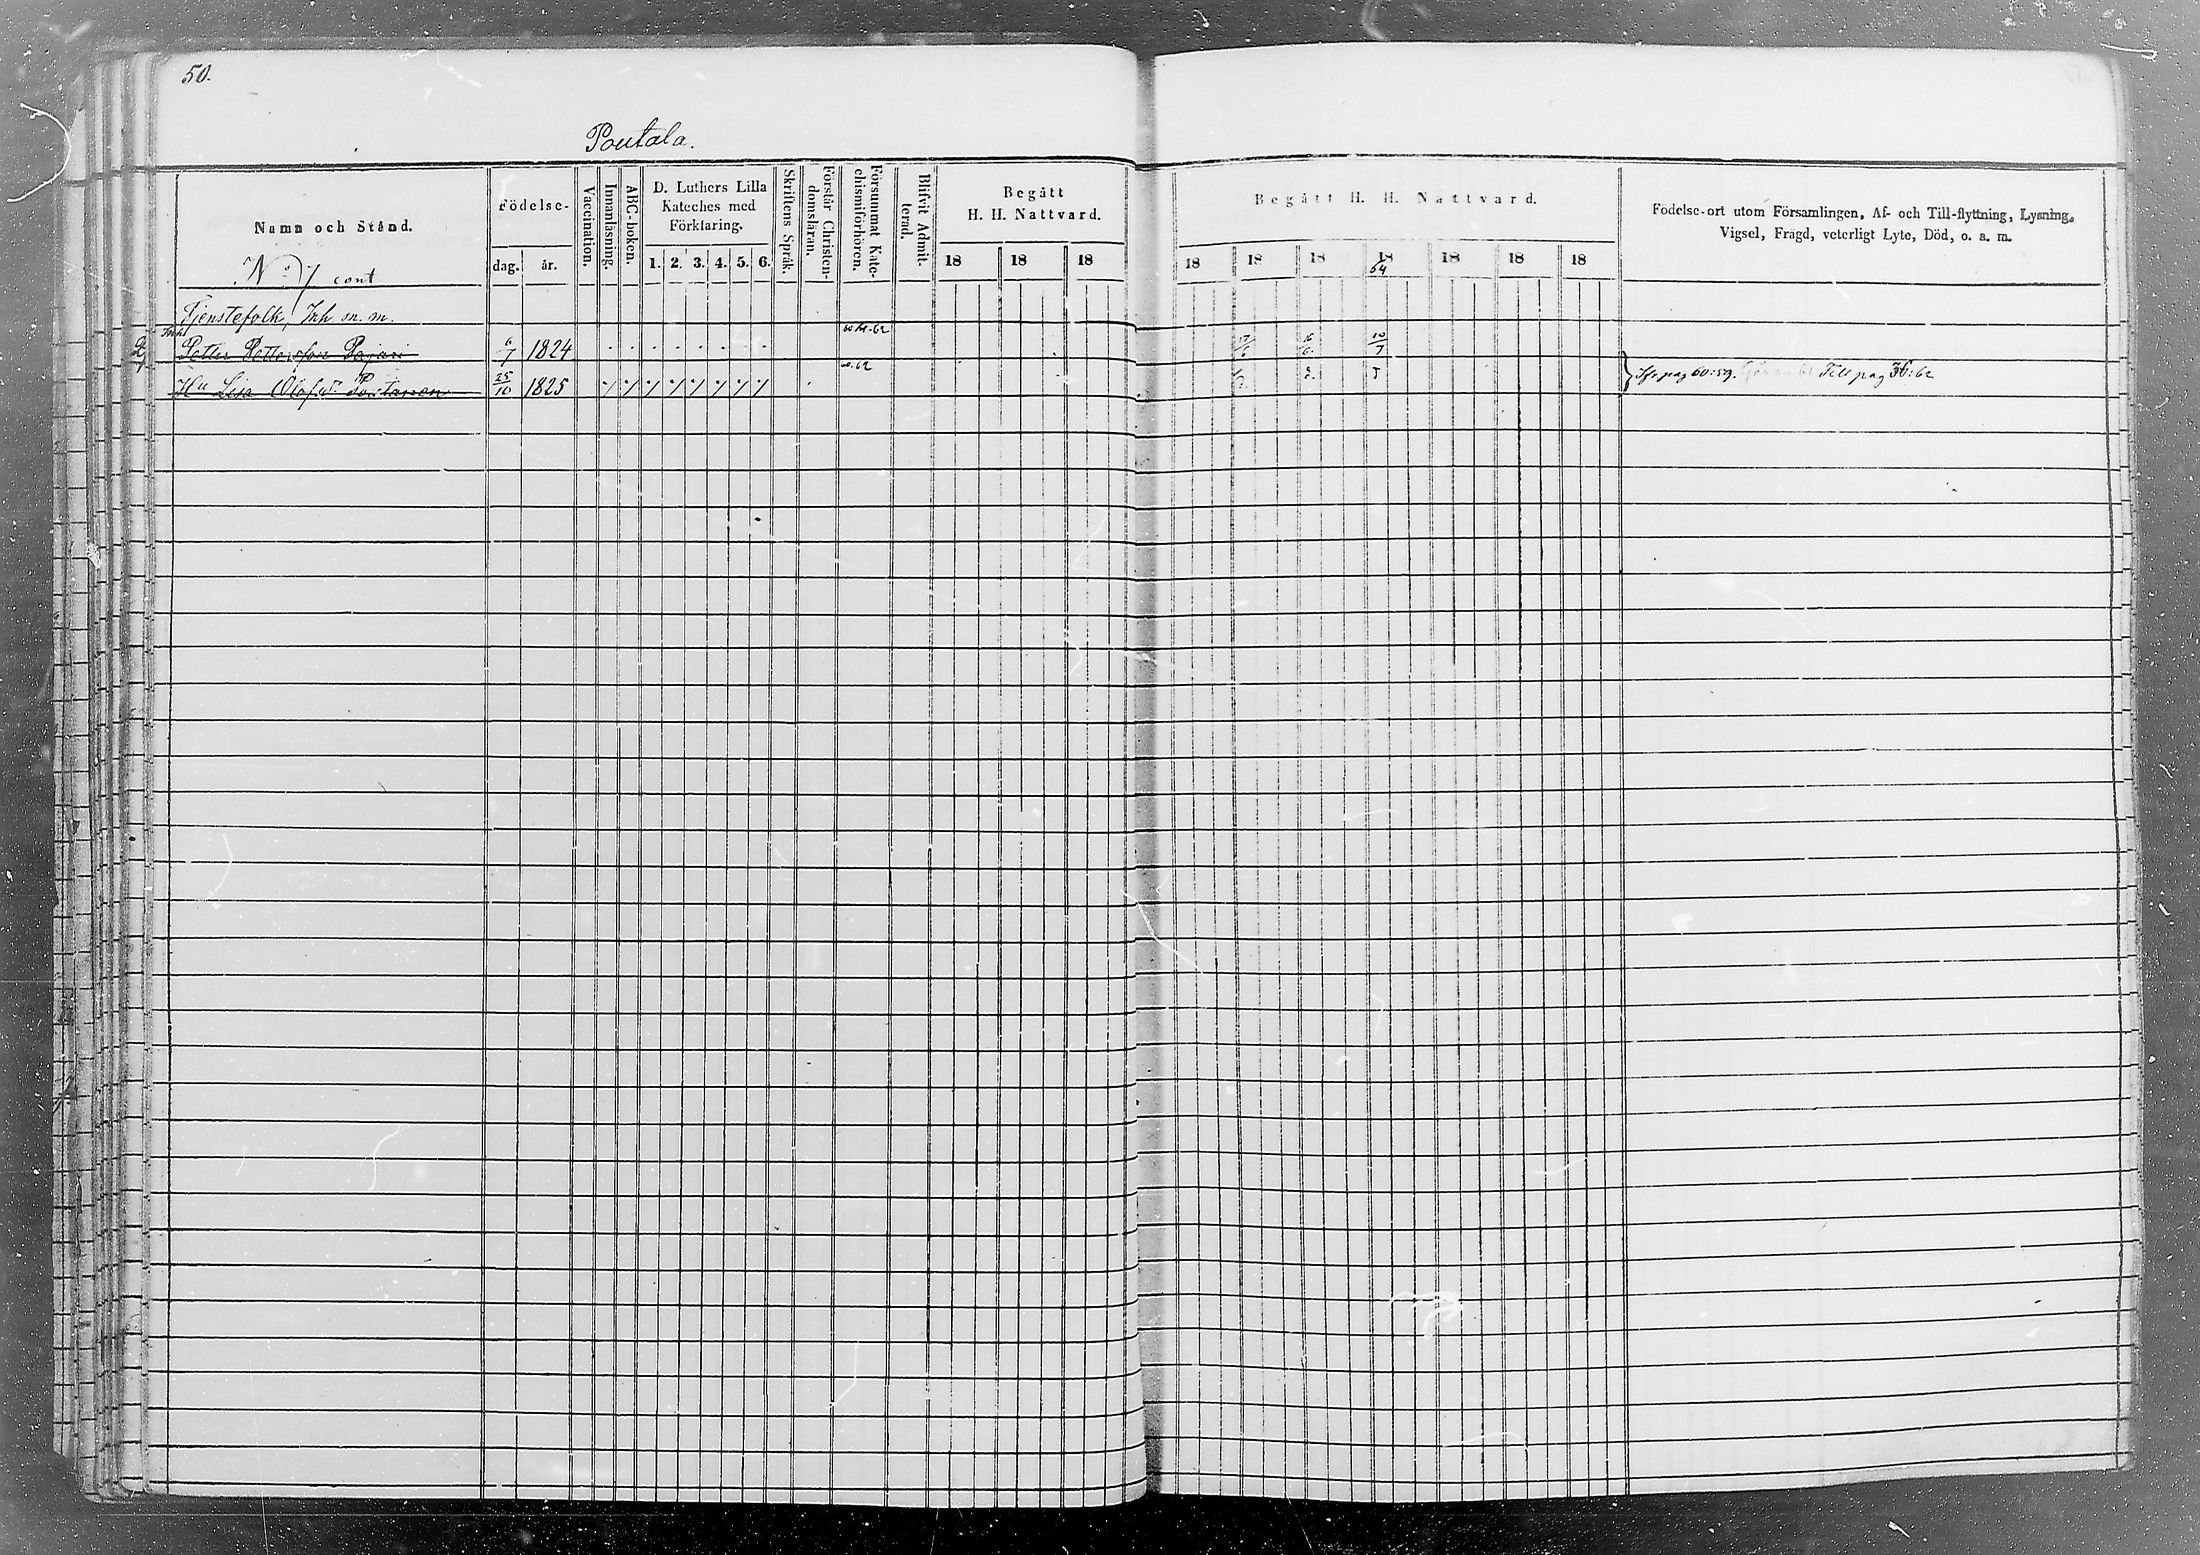 50.
Poutala.
Namn och Stånd.
Födelse-
dag. år.
Vaccination.
Innanläsning.
ABC-boken.
D. Luthers Lilla
Kateches med
Förklaring.
1. 2. 3. 4. 5. 6.
Skriftens Språk.
Förstår Christen-
domsläran.
Försummat Kate-
chismiförhören.
Blifvit Admit-
terad.
Begått
H. H. Nattvard.
18 18 18
Begått H. H. Nattvard.
18 18 18 18 18 18 18
64
Födelse-ort utom Församlingen, Af- och Till-flyttning, Lysning,
Vigsel, Frägd, veterligt Lyte, Död, o. a. m.
No 7 cont
Tjenstefolk, Inh. m. m.
Inh
Petter Pettersson Pajari 6/7 1824 17/6 10/7
Hu Lisa Olofsdr Poutanen 25/10 1825 62
Ifr. pag 60:59. Till pag 36:62